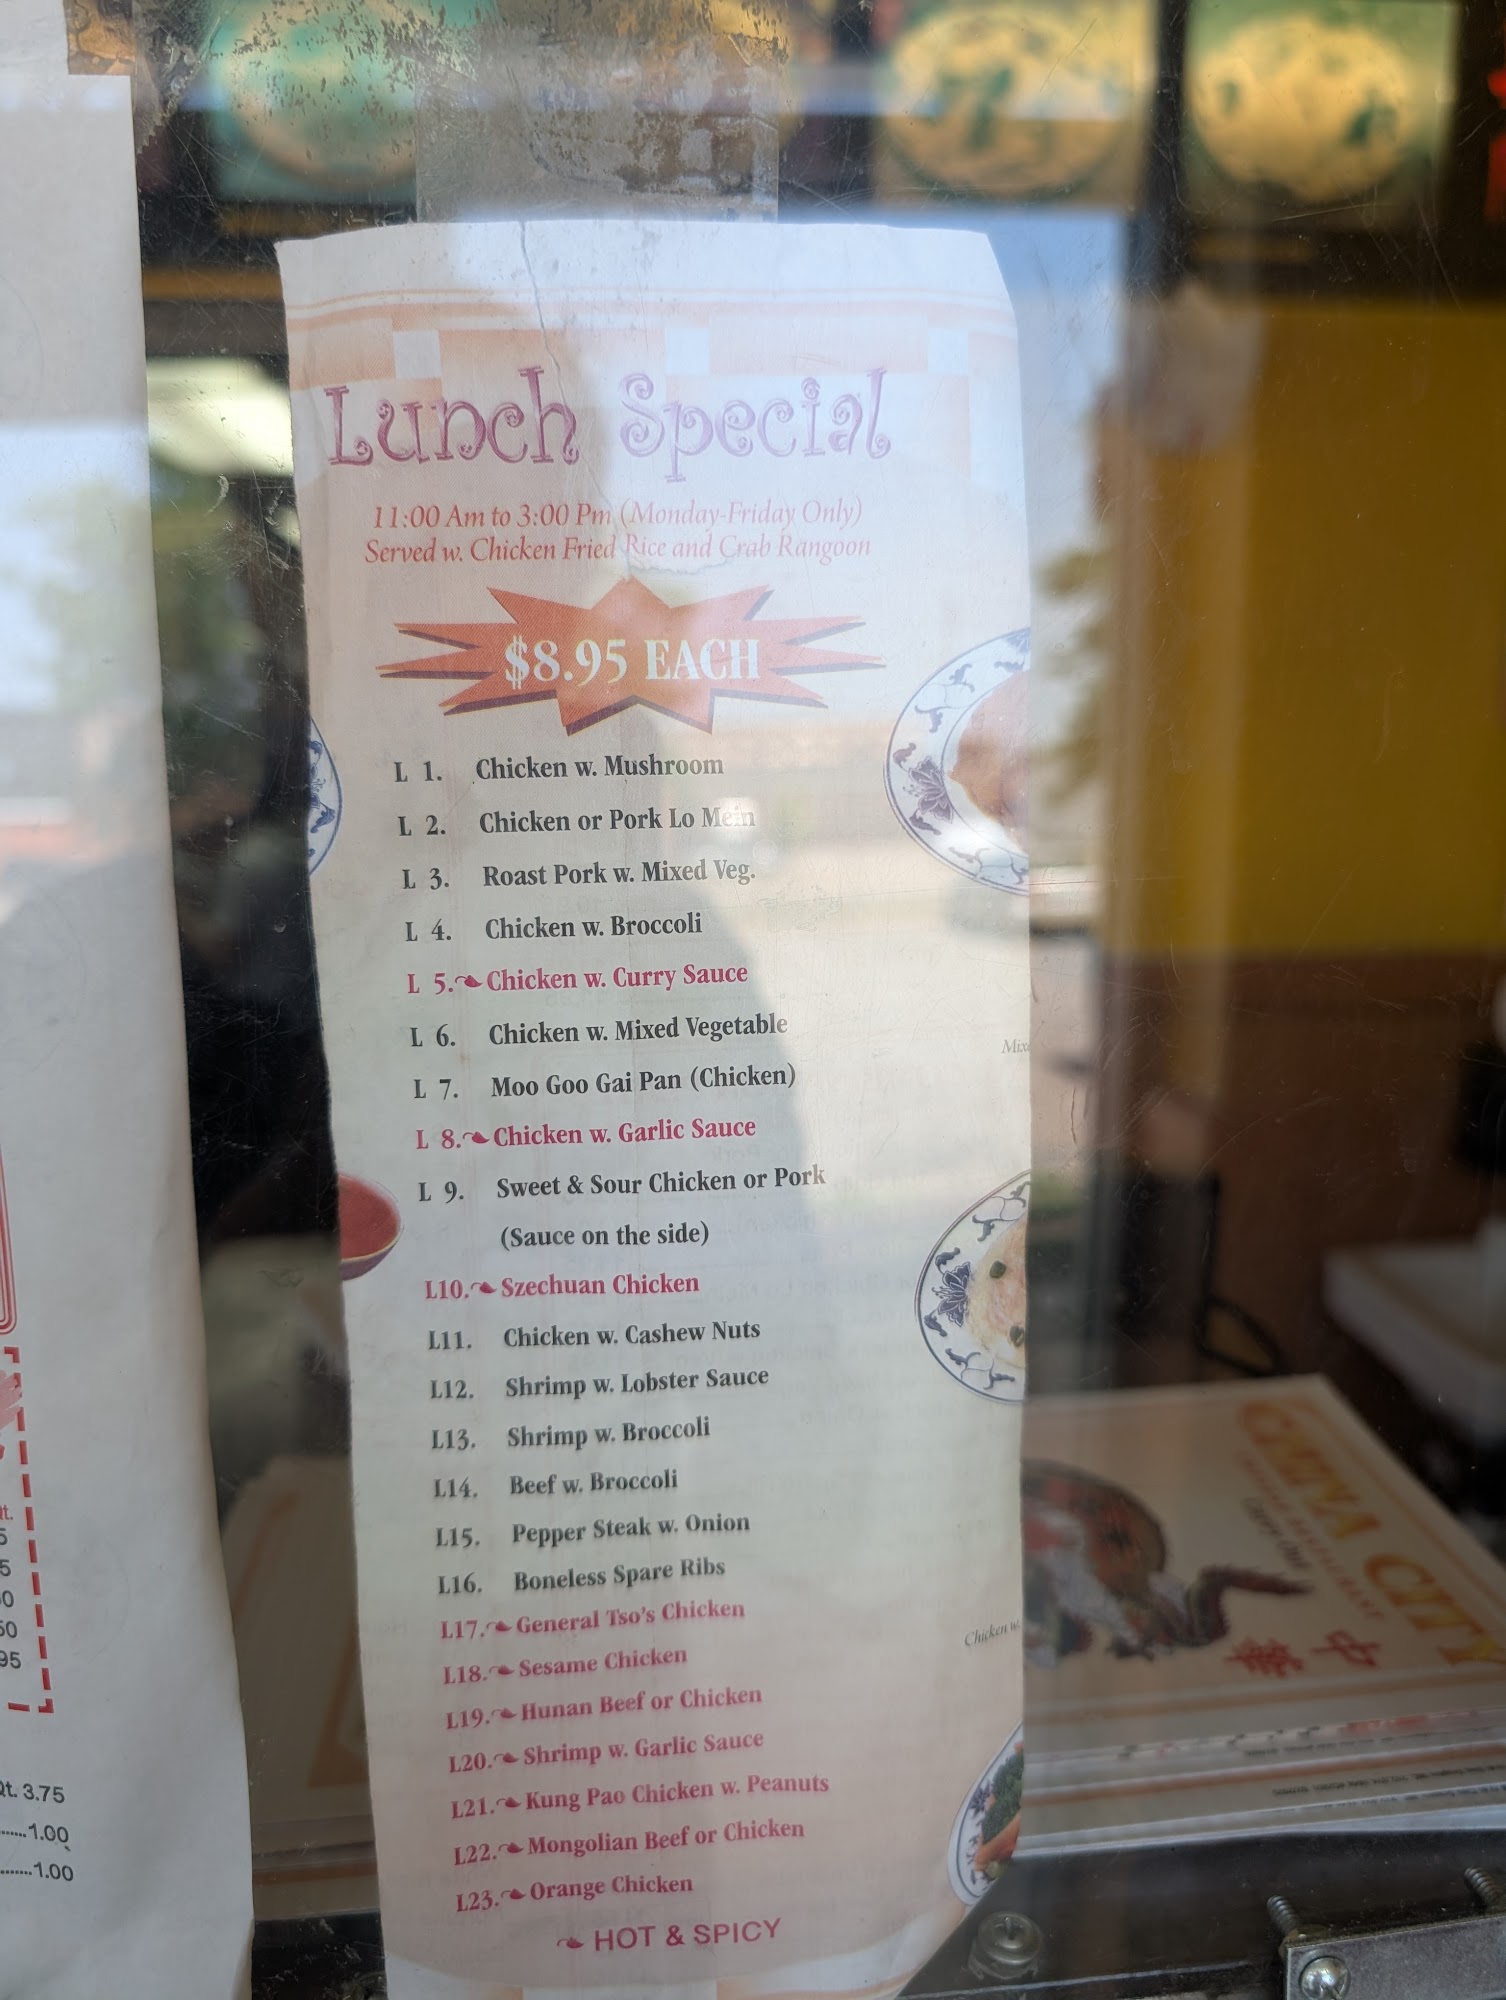 Lunch Special
11:00 Am to 3:00 Pm (Monday-Friday Only)
Served w. Chicken Fried Rice and Crab Rangoon
$8.95 EACH
L 1. Chicken w. Mushroom
L 2. Chicken or Pork Lo Mein
L 3. Roast Pork w. Mixed Veg.
L 4. Chicken w. Broccoli
L 5. Chicken w. Curry Sauce
L 6. Chicken w. Mixed Vegetable
L 7. Moo Goo Gai Pan (Chicken)
L 8. Chicken w. Garlic Sauce
L 9. Sweet & Sour Chicken or Pork
(Sauce on the side)
L10. Szechuan Chicken
L11. Chicken w. Cashew Nuts
L12. Shrimp w. Lobster Sauce
L13. Shrimp w. Broccoli
L14. Beef w. Broccoli
L15. Pepper Steak w. Onion
L16. Boneless Spare Ribs
L17. General Tso's Chicken
L18. Sesame Chicken
L19. Hunan Beef or Chicken
L20. Shrimp w. Garlic Sauce
L21. Kung Pao Chicken w. Peanuts
L22. Mongolian Beef or Chicken
L23. Orange Chicken
HOT & SPICY
Chicken w.
Qt. 3.75
1.00
1.00
CHINA CITY